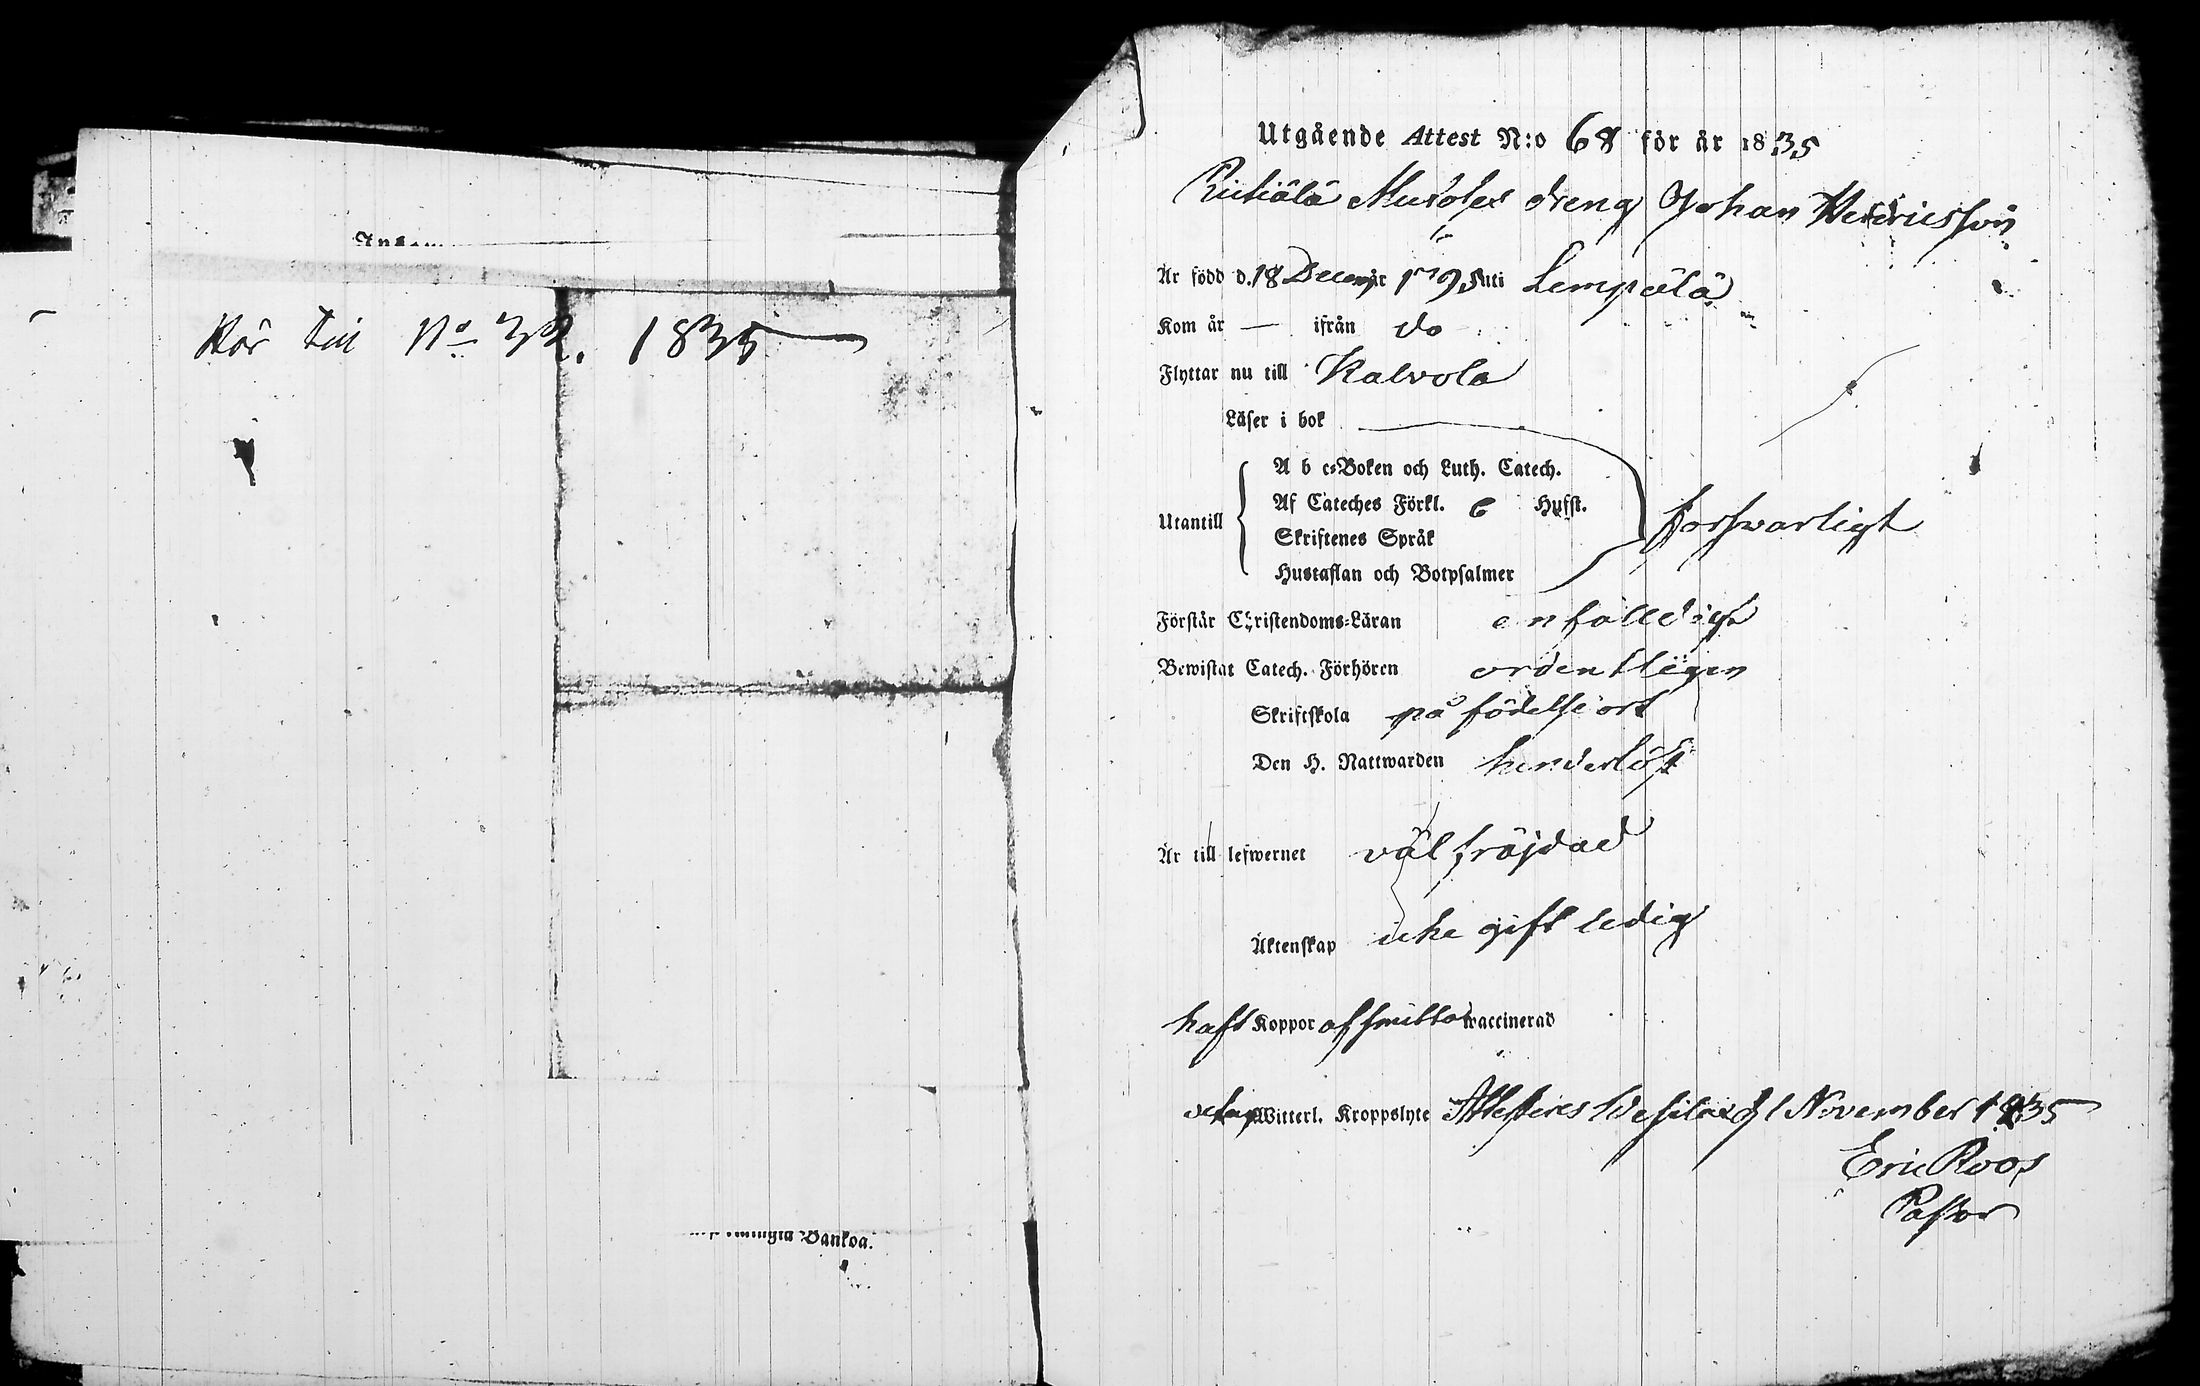 Hör till No 32. 1835
Bankoa.
Utgående Attest N:o 68 för år 1835
dreng Johan Hendricsson
Är född d. 18 Decemb:r 1795 uti Lempälä
Kom år — ifrån do
Flyttar nu till Kalvola
Läser i bok
Utantill
A b c-Boken och Luth. Catech.
Af Cateches Förkl. 6 Hufst.
Skriftenes Språk
Hustaflan och Botpsalmer
forsvarligt
Förstår Christendoms-Läran enfalldigt
Bewistat Catech. Förhören ordentligen
Skriftskola på födelseort
Den H. Nattwarden hinderlöst
Är till lefwernet väl fräjdad
Äktenskap icke gift ledig
haft Koppor af smittor vaccinerad
Witterl. Kroppslyte Attesteres Wesilax d 1 November 1835
Eric Roos
Pastor